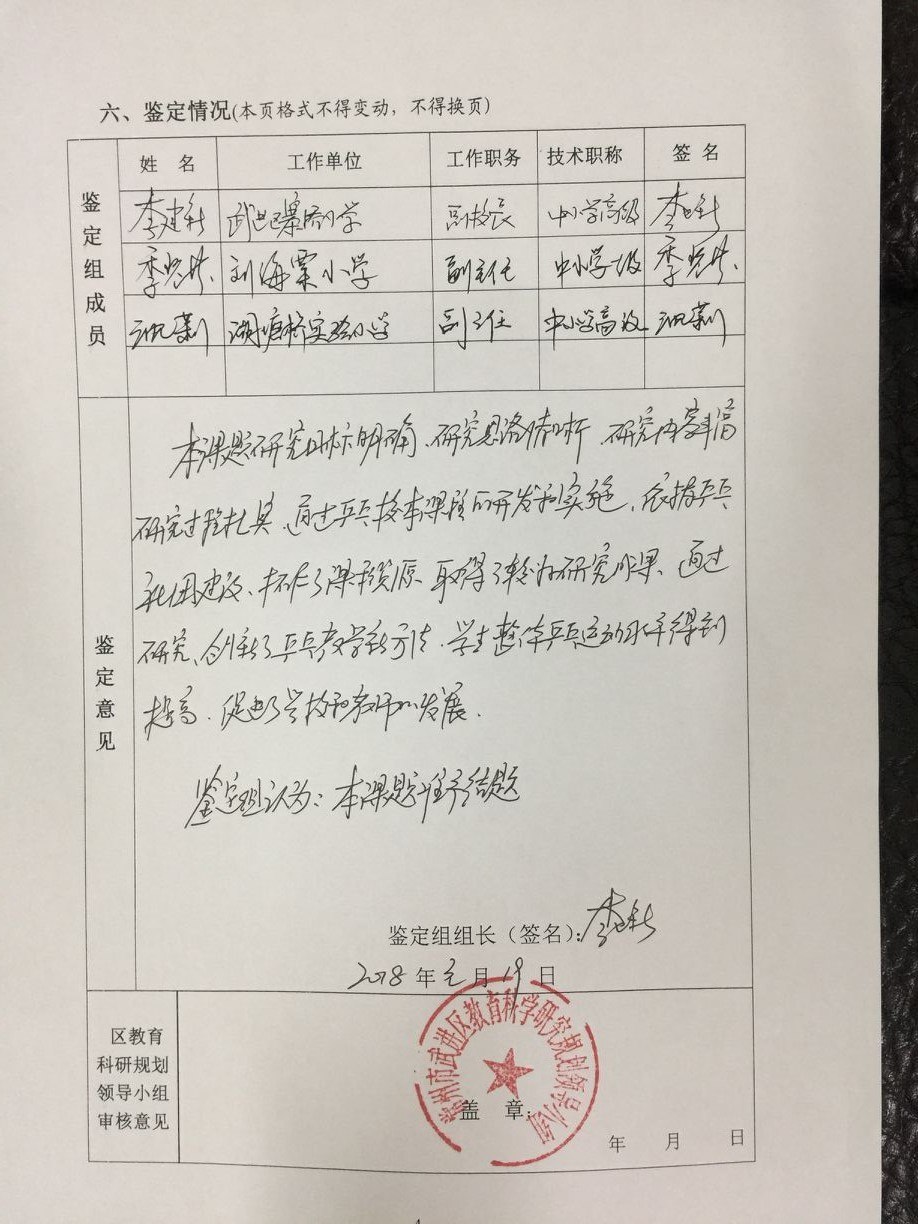 六、鉴定情况(本页格式不得变动，不得换页)
鉴定组成员
姓 名 工作单位 工作职务 技术职称 签 名
李建新 小学 副校长 中小学高级 李建新
季 刘海粟小学 副主任 中小学 级 季
湖塘桥实验小学 副主任 中小学高级
鉴定意见
本课题研究目标明确、研究思路清晰、研究内容丰富
研究过程扎实、通过乒乓校本课程的开发和实施，依托乒乓
社团建设、 了课程资源、取得了较好研究成果、通过
研究、创新了乒乓教学新方法、学生整体乒乓运动水平得到
提高、促进了学校和教师的发展、
鉴定组认为：本课题准予结题
鉴定组组长（签名）：李建新
2018 年 元 月 19 日
区教育
科研规划
领导小组
审核意见
常州市武进区教育科学研究规划领导小组
盖 章：
年 月 日